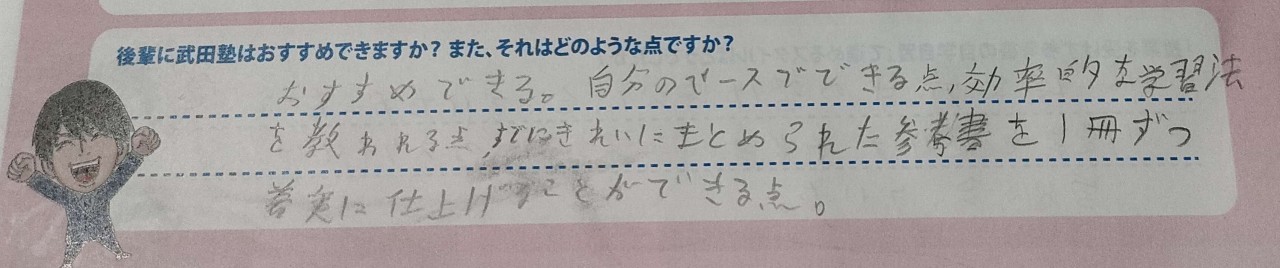 後輩に武田塾はおすすめできますか？また、それはどのような点ですか？
おすすめできる。自分のペースでできる点、効率的な学習法
を教われる点、すでにきれいにまとめられた参考書を1冊ずつ
着実に仕上げることができる点。